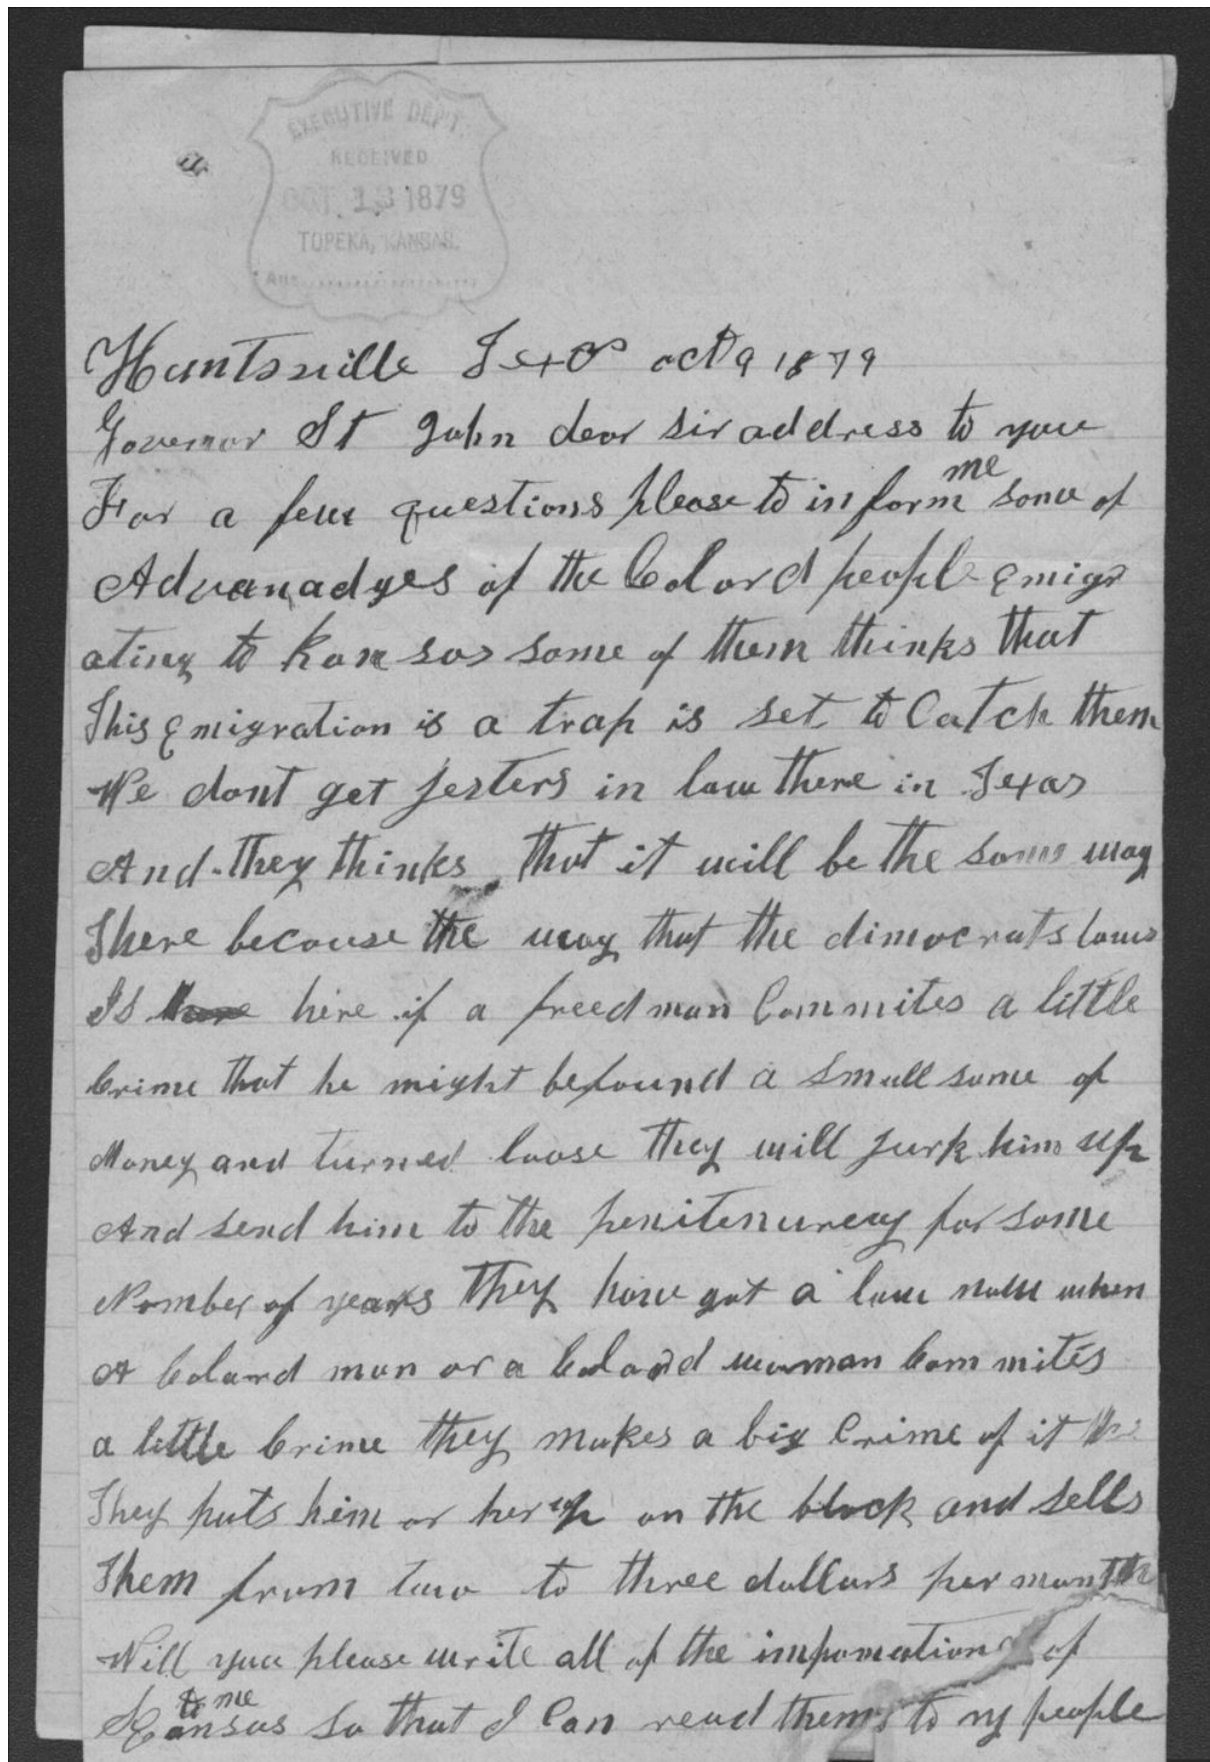 EXECUTIVE DEP'T.
RECEIVED
OCT. 13 1879
TOPEKA, KANSAS.
Ans
Huntsville Texas oct 9 1879
Governor St John dear sir address to you
For a few questions please to in form me some of
Advanadges of the Colord people Emigr
ating to Kansas some of them thinks that
This Emigration is a trap is set to Catch them
We dont get jesters in law there in Texas
And they thinks that it will be the same way
There because the way that the dimocrats laws
Is here if a freed man Commites a little
Crime that he might befound a small some of
Money and turned loose they will jurk him up
And send him to the penitenurey for some
Nomber of years They have got a law now when
A Colard man or a Colord woman Commites
a little Crime they makes a big Crime of it
They puts him or her up on the block and sells
Them from two to three dollars per month
Will you please write all of the impomation of
Kansas to me so that I Can read thems to my people